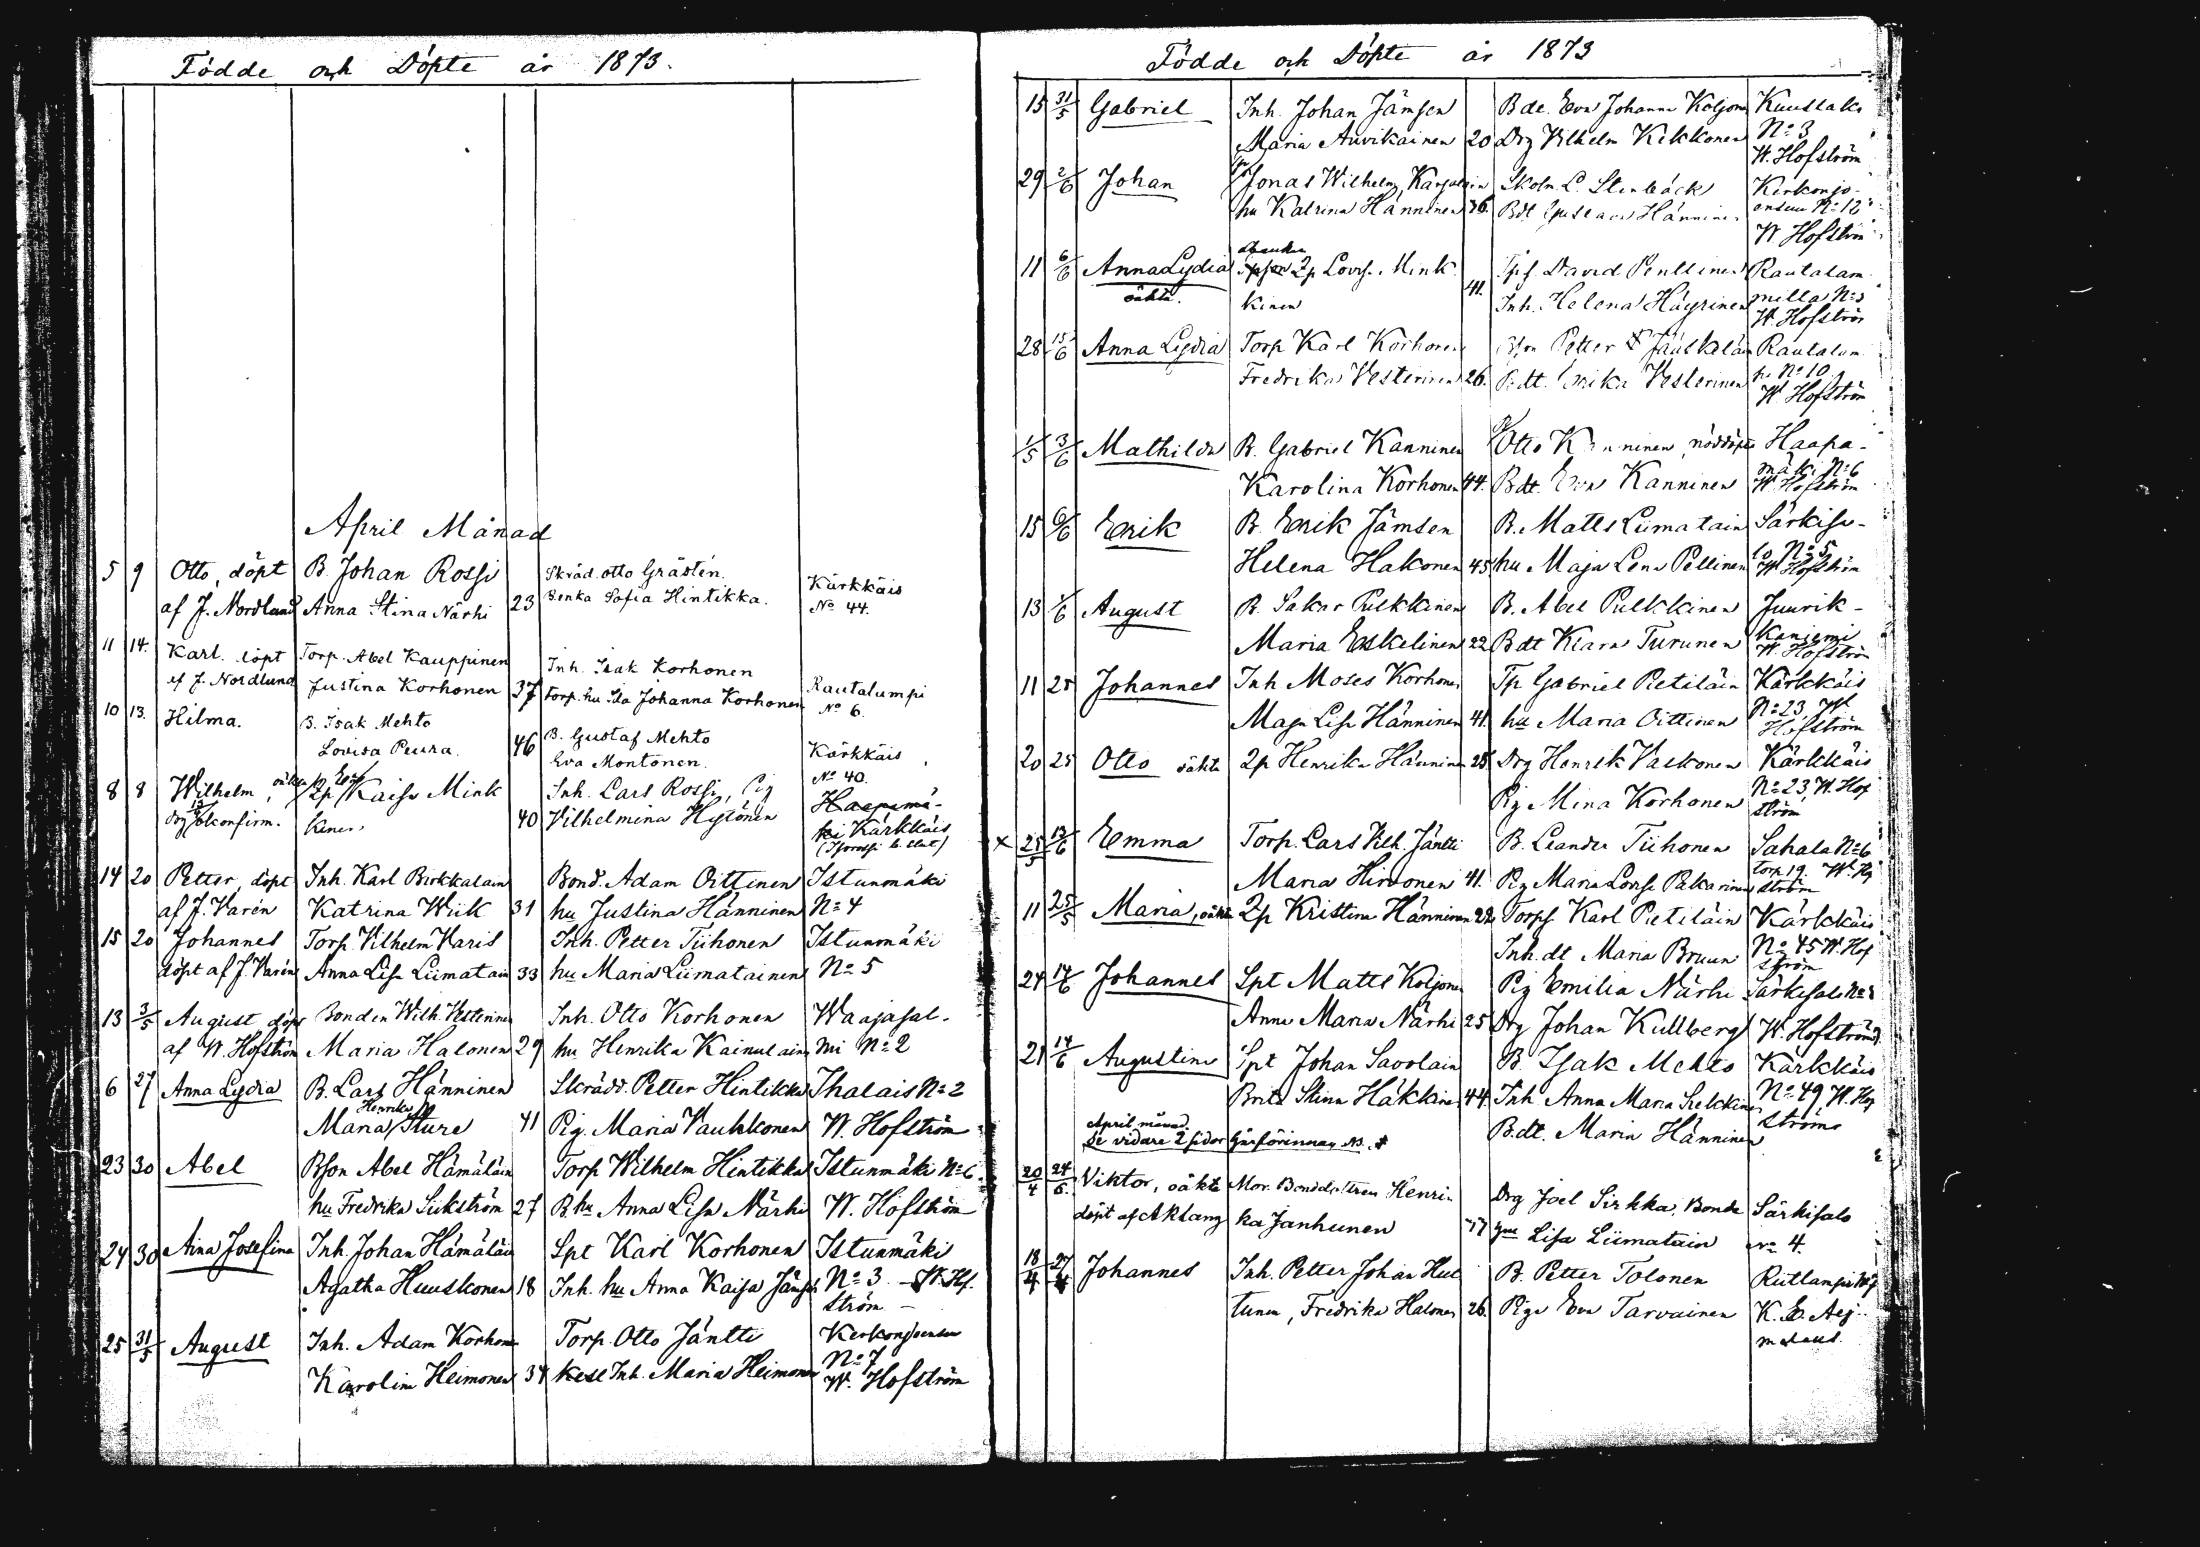 Födde och Döpte år 1873.
April Månad
5 9 Otto, döpt B. Johan Rossi Skräd. Otto Gråstén. Kärkkäis
af J. Nordlund Anna Stina Närhi 23 Benka Sofia Hintikka. No 44.
11 14. Karl. döpt Torp. Abel Kauppinen Inh. Isak Korhonen Rautalampi
af J. Nordlund Justina Korhonen 37 Torp. hu Ida Johanna Korhonen No 6.
10 13. Hilma. B. Isak Mehto B. Gustaf Mehto Kärkkäis
Lovisa Peura. 46 Eva Montonen. No 40.
8 8 Wilhelm, oäkta 2p Eva Kaisa Mink Inh. Lars Rossi, Pig Haapamä-
okonfirm. kinen 40 Vilhelmina Hytönen ki Kärkkäis
14 20 Petter, döpt Inh. Karl Birkkalain Bond. Adam Oittinen Istunmäki
af J. Varén Katrina Wiik 31 hu Justina Hänninen No 4
15 20 Johannes Torp. Vilhelm Karis Inh. Petter Tiihonen Istunmäki
döpt af J. Varén Anna Lisa Liimatain 33 hu Maria Liimatainen No 5
13 3/5 August döpt Bonden Wilh. Vesterinen Inh. Otto Korhonen Waajasal-
af W. Hofström Maria Halonen 29 hu Henrika Kainulain mi No 2
6 27 Anna Lydia B. Lars Hänninen Skrädd. Petter Hintikka Ihalais No 2
Maria Henrika Sture 41 Pig. Maria Vauhkonen W. Hofström
23 30 Abel Bson Abel Hämäläin Torp Wilhelm Hintikka Istunmäki No 6
hu Fredrika Sikström 27 B. hu Anna Lisa Närhi W. Hofström
24 30 Aina Josefina Inh. Johan Hämäläin Spt Karl Korhonen Istunmäki
Agatha Huuskonen 18 Inh. hu Anna Kaisa Jämsen No 3 W. Hf.
ström
25 31/5 August Inh. Adam Korhonen Torp. Otto Jäntti Kerkonjoensuu
Karolina Heimonen 34 Inh. Maria Heimonen No 7
W. Hofström
Födde och Döpte år 1873
15 31/5 Gabriel Inh. Johan Jämsen Bdt. Eva Johanna Koljonen Kuusla
Maria Auvikainen 20 Drg Vilhelm Kekkonen No 3
W. Hofström
29 2/6 Johan Jonas Wilhelm Karjalain Skoln. L. Stenbäck Kerkonjo-
hu Katrina Hänninen 36. Bdt Gustava Hänninen ensuu No 12
W Hofström
11 6/6 Anna Lydia 2p Lovisa Mink David Penttinen Rautalam
oäkta. kinen 41. Inh. Helena Häyrinen No 3
W. Hofström
28 15/6 Anna Lydia Torp Karl Korhonen Petter Jääskeläin Rautalam
Fredrika Vesterinen 26. Bdt. Erika Vesterinen pi No 10.
W. Hofström
1/5 3/6 Mathilda B. Gabriel Kanninen Otto Kanninen, nöddöpt Haapa-
Karolina Korhonen 44. Bdt. Eva Kanninen mäki No 6
W. Hofström
15 6/6 Erik B. Erik Jämsen B. Matts Liimatain Särkisa-
Helena Hakonen 45 hu Maja Lena Pellinen lo No 5
W. Hofström
13 1/6 August B. Sakar Pulkkinen B. Abel Pulkkinen Juurik-
Maria Eskelinen 22 Bdt Klara Turunen kaniemi
W. Hofström
11 25 Johannes Inh Moses Korhonen Tp Gabriel Pietiläin Kärkkäis
Maja Lisa Hänninen 41. hu Maria Oittinen No 23 W
Hofström
20 25 Otto oäkta 2p Henrika Hänninen 25 Drg Henrik Vaskonen Kärkkäis
Pig Mina Korhonen No 23 W. Hof
ström
x 25/5 13/6 Emma Torp. Lars Vilh. Jäntti B. Leander Tiihonen Sahala No 6
Maria Hirvonen 41. Pig Maria Lovisa Pakarinen torp 19. W. Hof
ström
11 25/5 Maria, oäkta 2p Kristina Hänninen 22 Torps. Karl Pietiläin Kärkkäis
Inh. dt Maria Bruun No 45 W. Hof
ström
24 14/6 Johannes Spt Matts Koljonen Pig Emilia Närhi Särkisalo No 2
Anna Maria Närhi 25 Drg Johan Kullberg W. Hofström
21 14/6 Augustina Spt Johan Savolain B. Isak Mehto Kärkkäis
Brita Stina Häkkinen 44. Inh Anna Maria No 49 W. Hof
April månad. Bdt. Maria Hänninen ström
Se vidare 2 sidor härförinnan
20/4 24/5. Viktor, oäkta Mor. Bondedottren Henri- Drg Joel Sirkka, Bonde Särkisalo
döpt af Aklang ka Janhunen Lisa Liimatain No 4.
18/4 27/4 Johannes Inh. Petter Johan Hut B. Petter Tolonen
tunen, Fredrika Halonen 26. Piga Eva Tarvainen K. E. Aej-
melaeus.